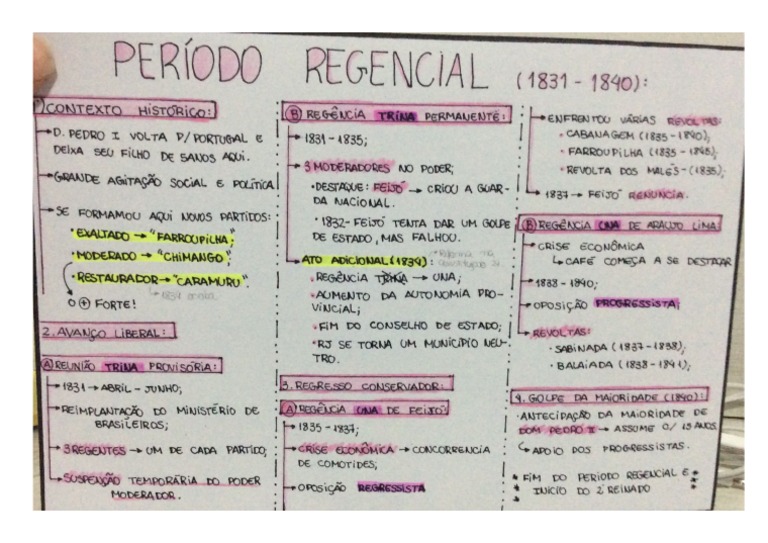 PERÍODO REGENCIAL (1831 - 1840):
1) CONTEXTO HISTÓRICO:
→ D. PEDRO I VOLTA P/ PORTUGAL E
DEIXA SEU FILHO DE 5ANOS AQUI.
→ GRANDE AGITAÇÃO SOCIAL E POLÍTICA
→ SE FORMAMOU AQUI NOVOS PARTIDOS:
• EXALTADO → "FARROUPILHA";
• MODERADO → "CHIMANGO";
• RESTAURADOR → "CARAMURU"
→ 1834
O ⊕ FORTE!
2. AVANÇO LIBERAL:
A) REUNIÃO TRINA PROVISÓRIA:
→ 1831 → ABRIL - JUNHO;
→ REIMPLANTAÇÃO DO MINISTÉRIO DE
BRASILEIROS;
→ 3 REGENTES → UM DE CADA PARTIDO;
→ SUSPENÇÃO TEMPORÁRIA DO PODER
MODERADOR.
B) REGÊNCIA TRINA PERMANENTE:
→ 1831 - 1835;
→ 3 MODERADORES NO PODER;
• DESTAQUE: FEIJÓ → CRIOU A GUAR-
DA NACIONAL.
• 1832- FEIJÓ TENTA DAR UM GOLPE
DE ESTADO, MAS FALHOU.
→ ATO ADICIONAL (1834):
• REGÊNCIA TRINA → UNA;
• AUMENTO DA AUTONOMIA PRO-
VINCIAL;
• FIM DO CONSELHO DE ESTADO;
• RJ SE TORNA UM MUNICÍPIO NEU-
TRO.
3. REGRESSO CONSERVADOR:
A) REGÊNCIA UNA DE FEIJÓ:
→ 1835 - 1837;
→ CRISE ECONÔMICA → CONCORRENCIA
DE COMOTIDES;
→ OPOSIÇÃO REGRESSISTA
→ ENFRENTOU VÁRIAS REVOLTAS:
• CABANAGEM (1835 - 1840);
• FARROUPILHA (1835 - 1845);
• REVOLTA DOS MALÊS - (1835);
→ 1837 → FEIJÓ RENUNCIA.
B) REGÊNCIA UNA DE ARAÚJO LIMA:
→ CRISE ECONÔMICA
↳ CAFÉ COMEÇA A SE DESTACAR
→ 1838 - 1840;
→ OPOSIÇÃO PROGRESSISTA;
→ REVOLTAS:
• SABINADA (1837 - 1838);
• BALAIADA (1838 - 1841);
4. GOLPE DA MAIORIDADE (1840):
• ANTECIPAÇÃO DA MAIORIDADE DE
DOM PEDRO II → ASSUME C/ 15 ANOS
↳ APOIO DOS PROGRESSISTAS.
* FIM DO PERÍODO REGENCIAL E *
* INÍCIO DO 2º REINADO *